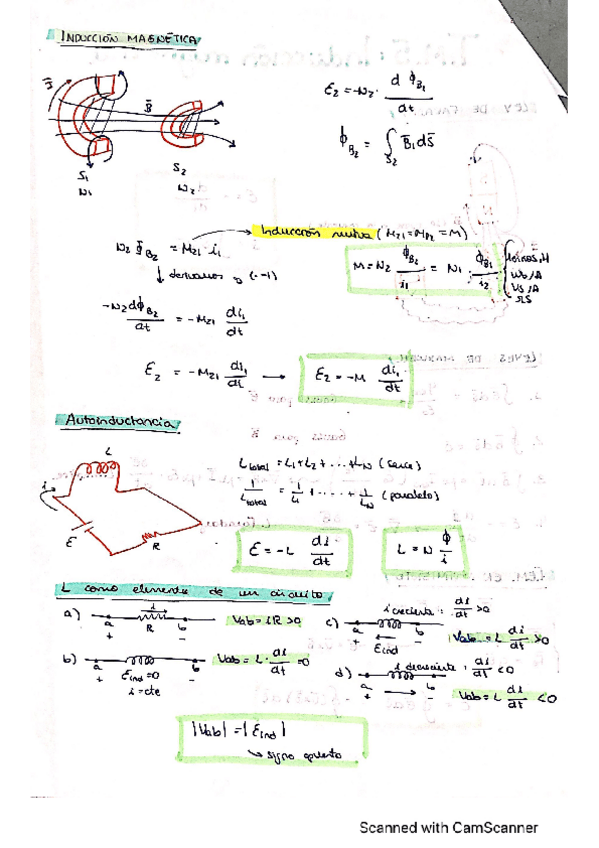 INDUCCIÓN MAGNÉTICA
B̄
S₁
N₁
S₂
N₂
ε₂ = -N₂ · dϕ_B₂/dt
ϕ_B₂ = ∫_S₂ B̄₁dS̄
Inducción mutua (M₂₁=M₁₂=M)
N₂ ϕ_B₂ = M₂₁ · i₁
↓ derivamos y (·-1)
M = N₂ ϕ_B₂/i₁ = N₁ · ϕ_B₁/i₂
Wb/A
VS/A
ΩS
-N₂dϕ_B₂/dt = -M₂₁ di₁/dt
ε₂ = -M₂₁ di₁/dt → ε₂ = -M di₁/dt
Autoinductancia
L
i
ε
R
L_total = L₁+L₂+...+L_N (serie)
1/L_total = 1/L₁ + ... + 1/L_N (paralelo)
ε = -L di/dt
L = N ϕ/i
L como elemento de un circuito
a) i a R b + - Vab = iR >0
b) a b + - ε_ind = 0 i = cte Vab = L · di/dt = 0
c) i creciente : di/dt >0 a b + - ε_ind Vab = L di/dt >0
d) i decreciente : di/dt <0 a b + - Vab = L di/dt <0
|Vab| = |ε_ind|
↳ signo opuesto
Scanned with CamScanner